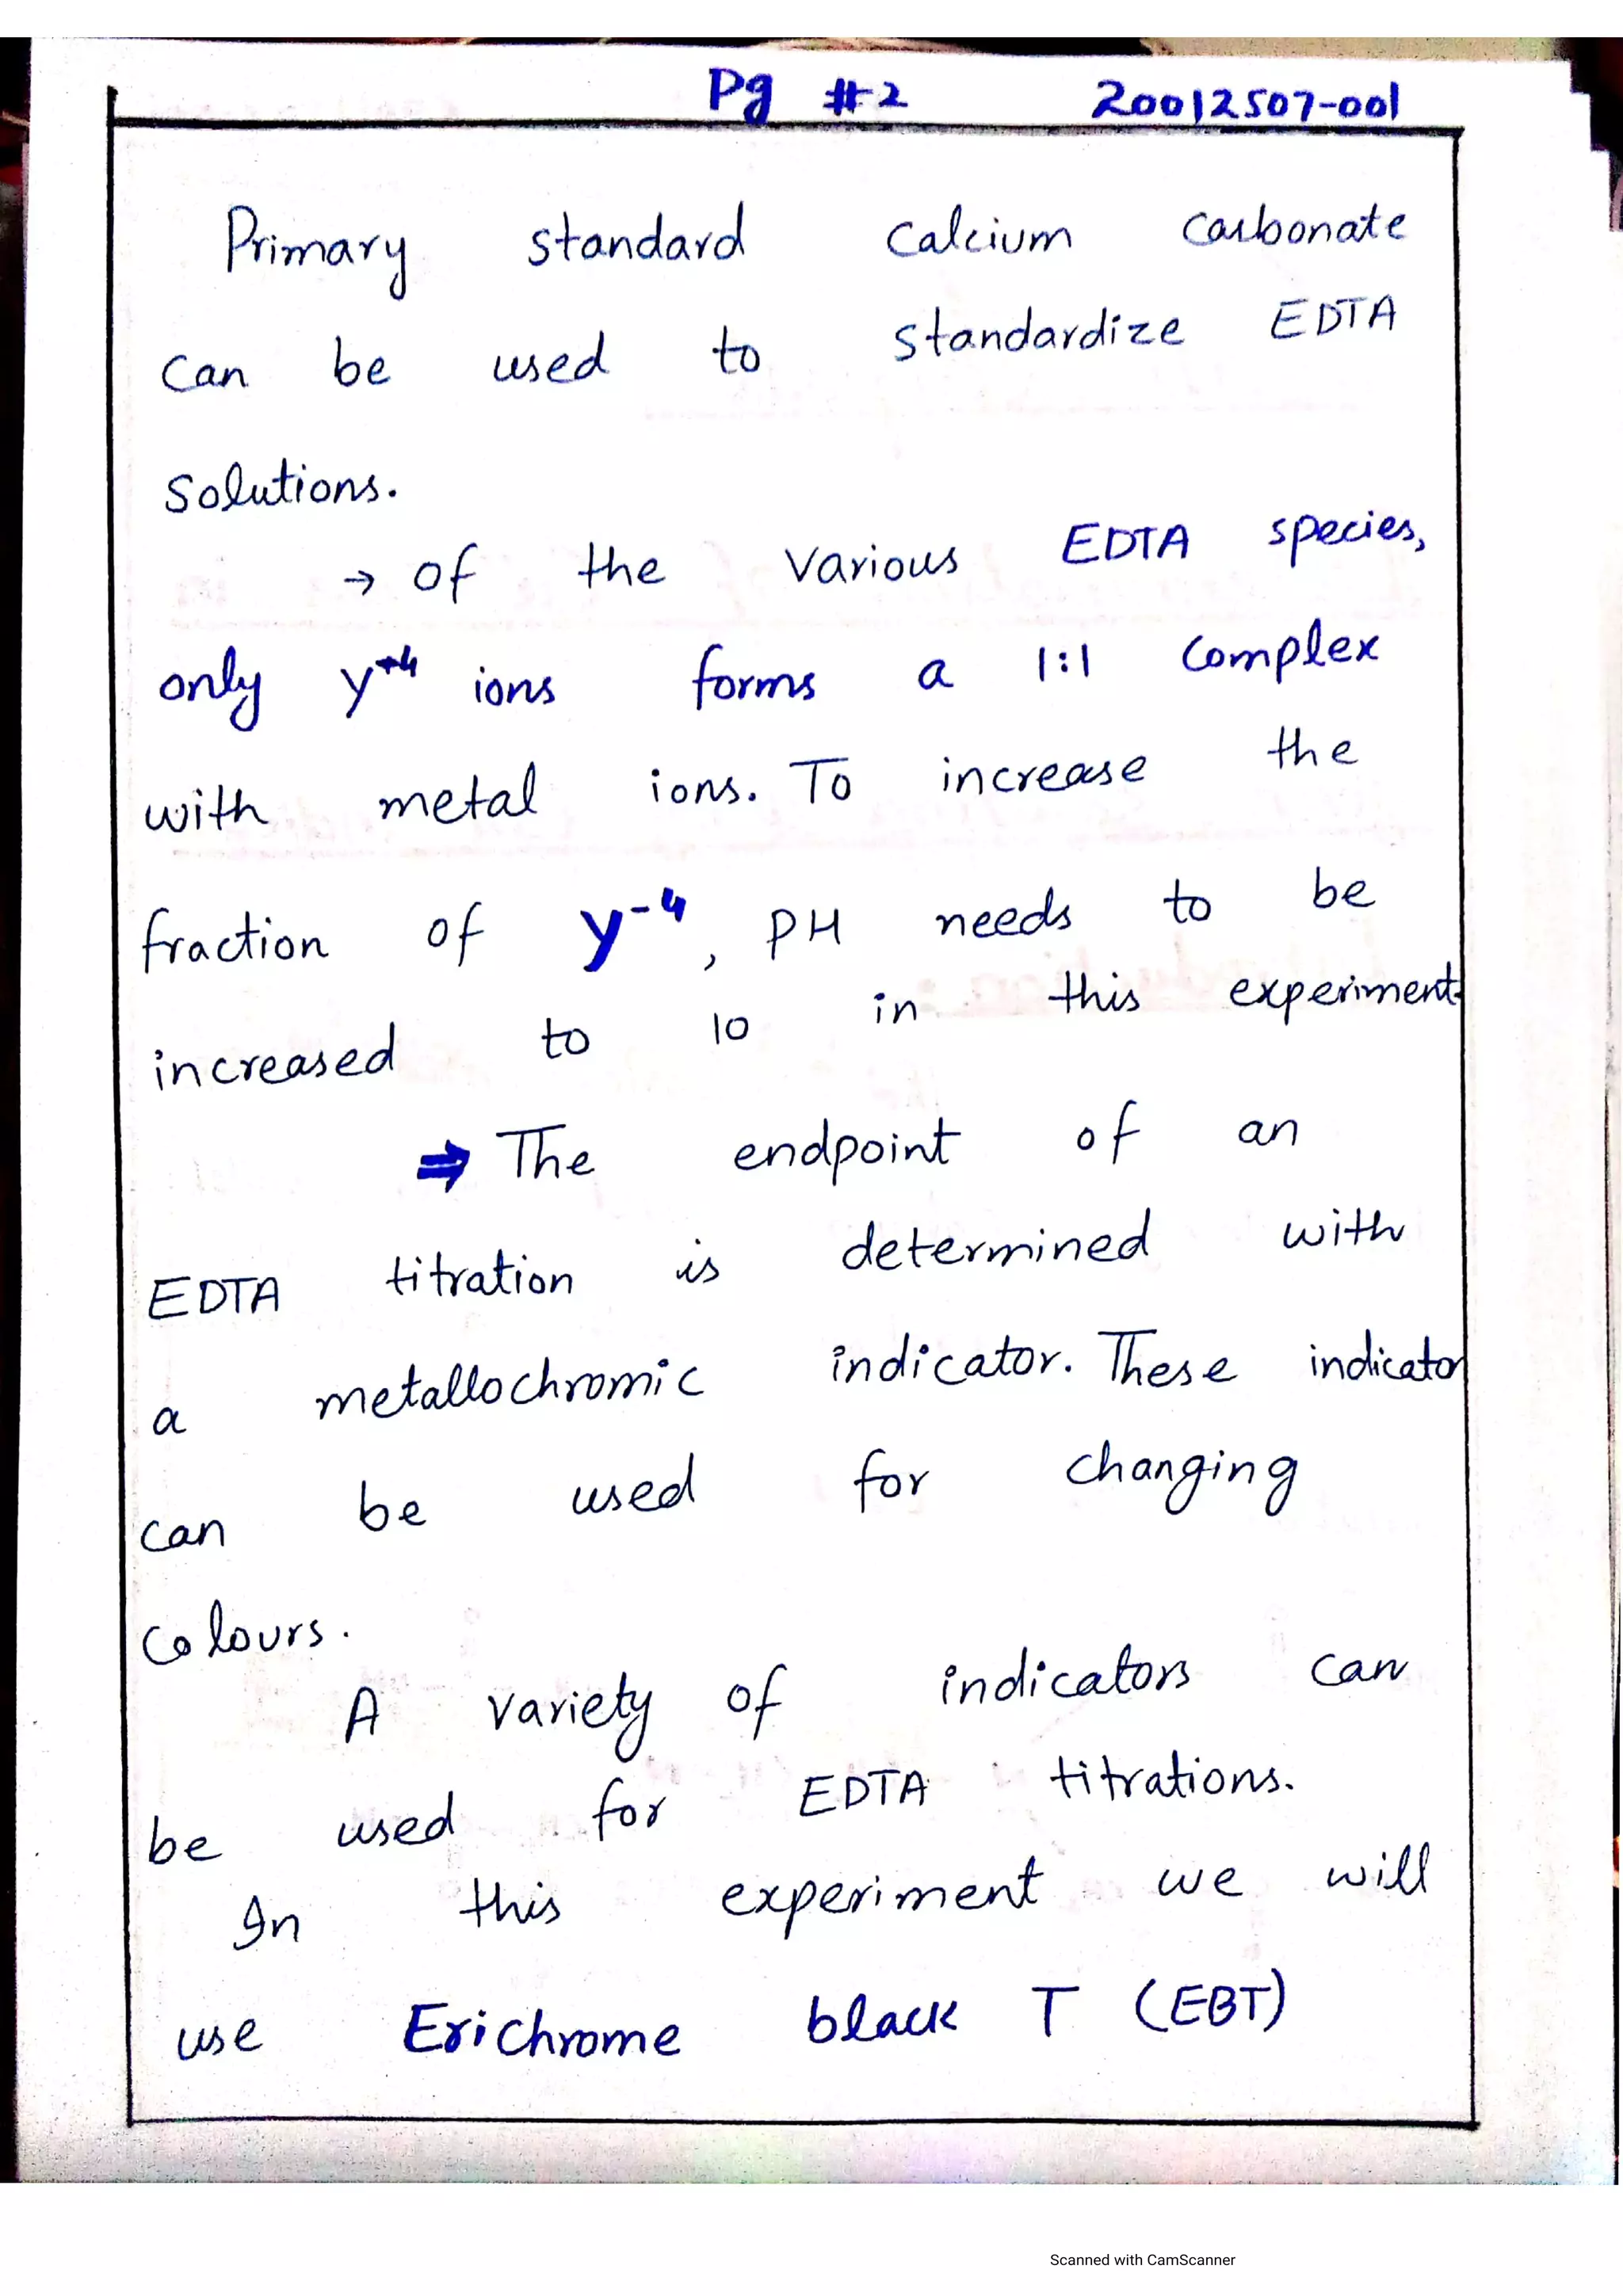 Pg #2 20012507-001
Primary standard Calcium Carbonate
can be used to standardize EDTA
Solutions.
→ of the various EDTA species,
only y⁻⁴ ions forms a 1:1 Complex
with metal ions. To increase the
fraction of y⁻⁴, PH needs to be
increased to 10 in this experiment
⇒ The endpoint of an
EDTA titration is determined with
a metallochromic indicator. These indicator
can be used for changing
Colours.
A variety of indicators can
be used for EDTA titrations.
In this experiment we will
use Erichrome black T (EBT)
Scanned with CamScanner